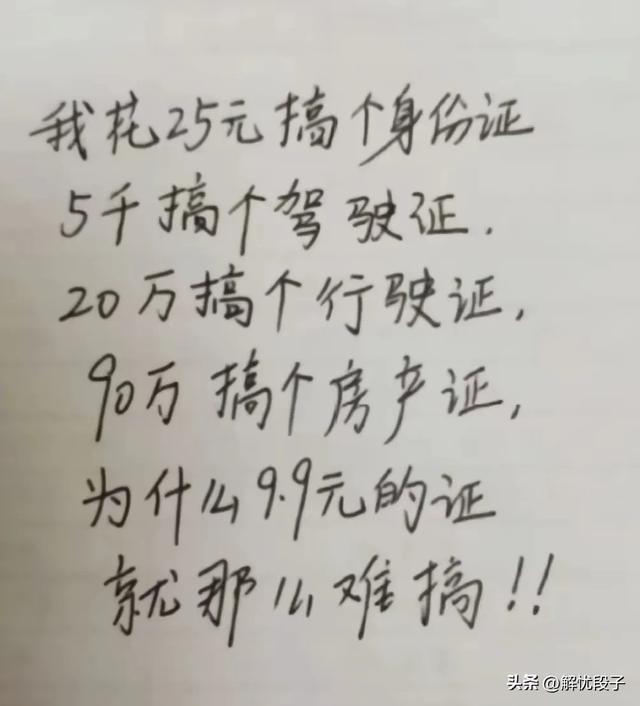 我花25元搞个身份证
5千搞个驾驶证.
20万搞个行驶证,
90万搞个房产证,
为什么9.9元的证
就那么难搞!!
头条 @解忧段子